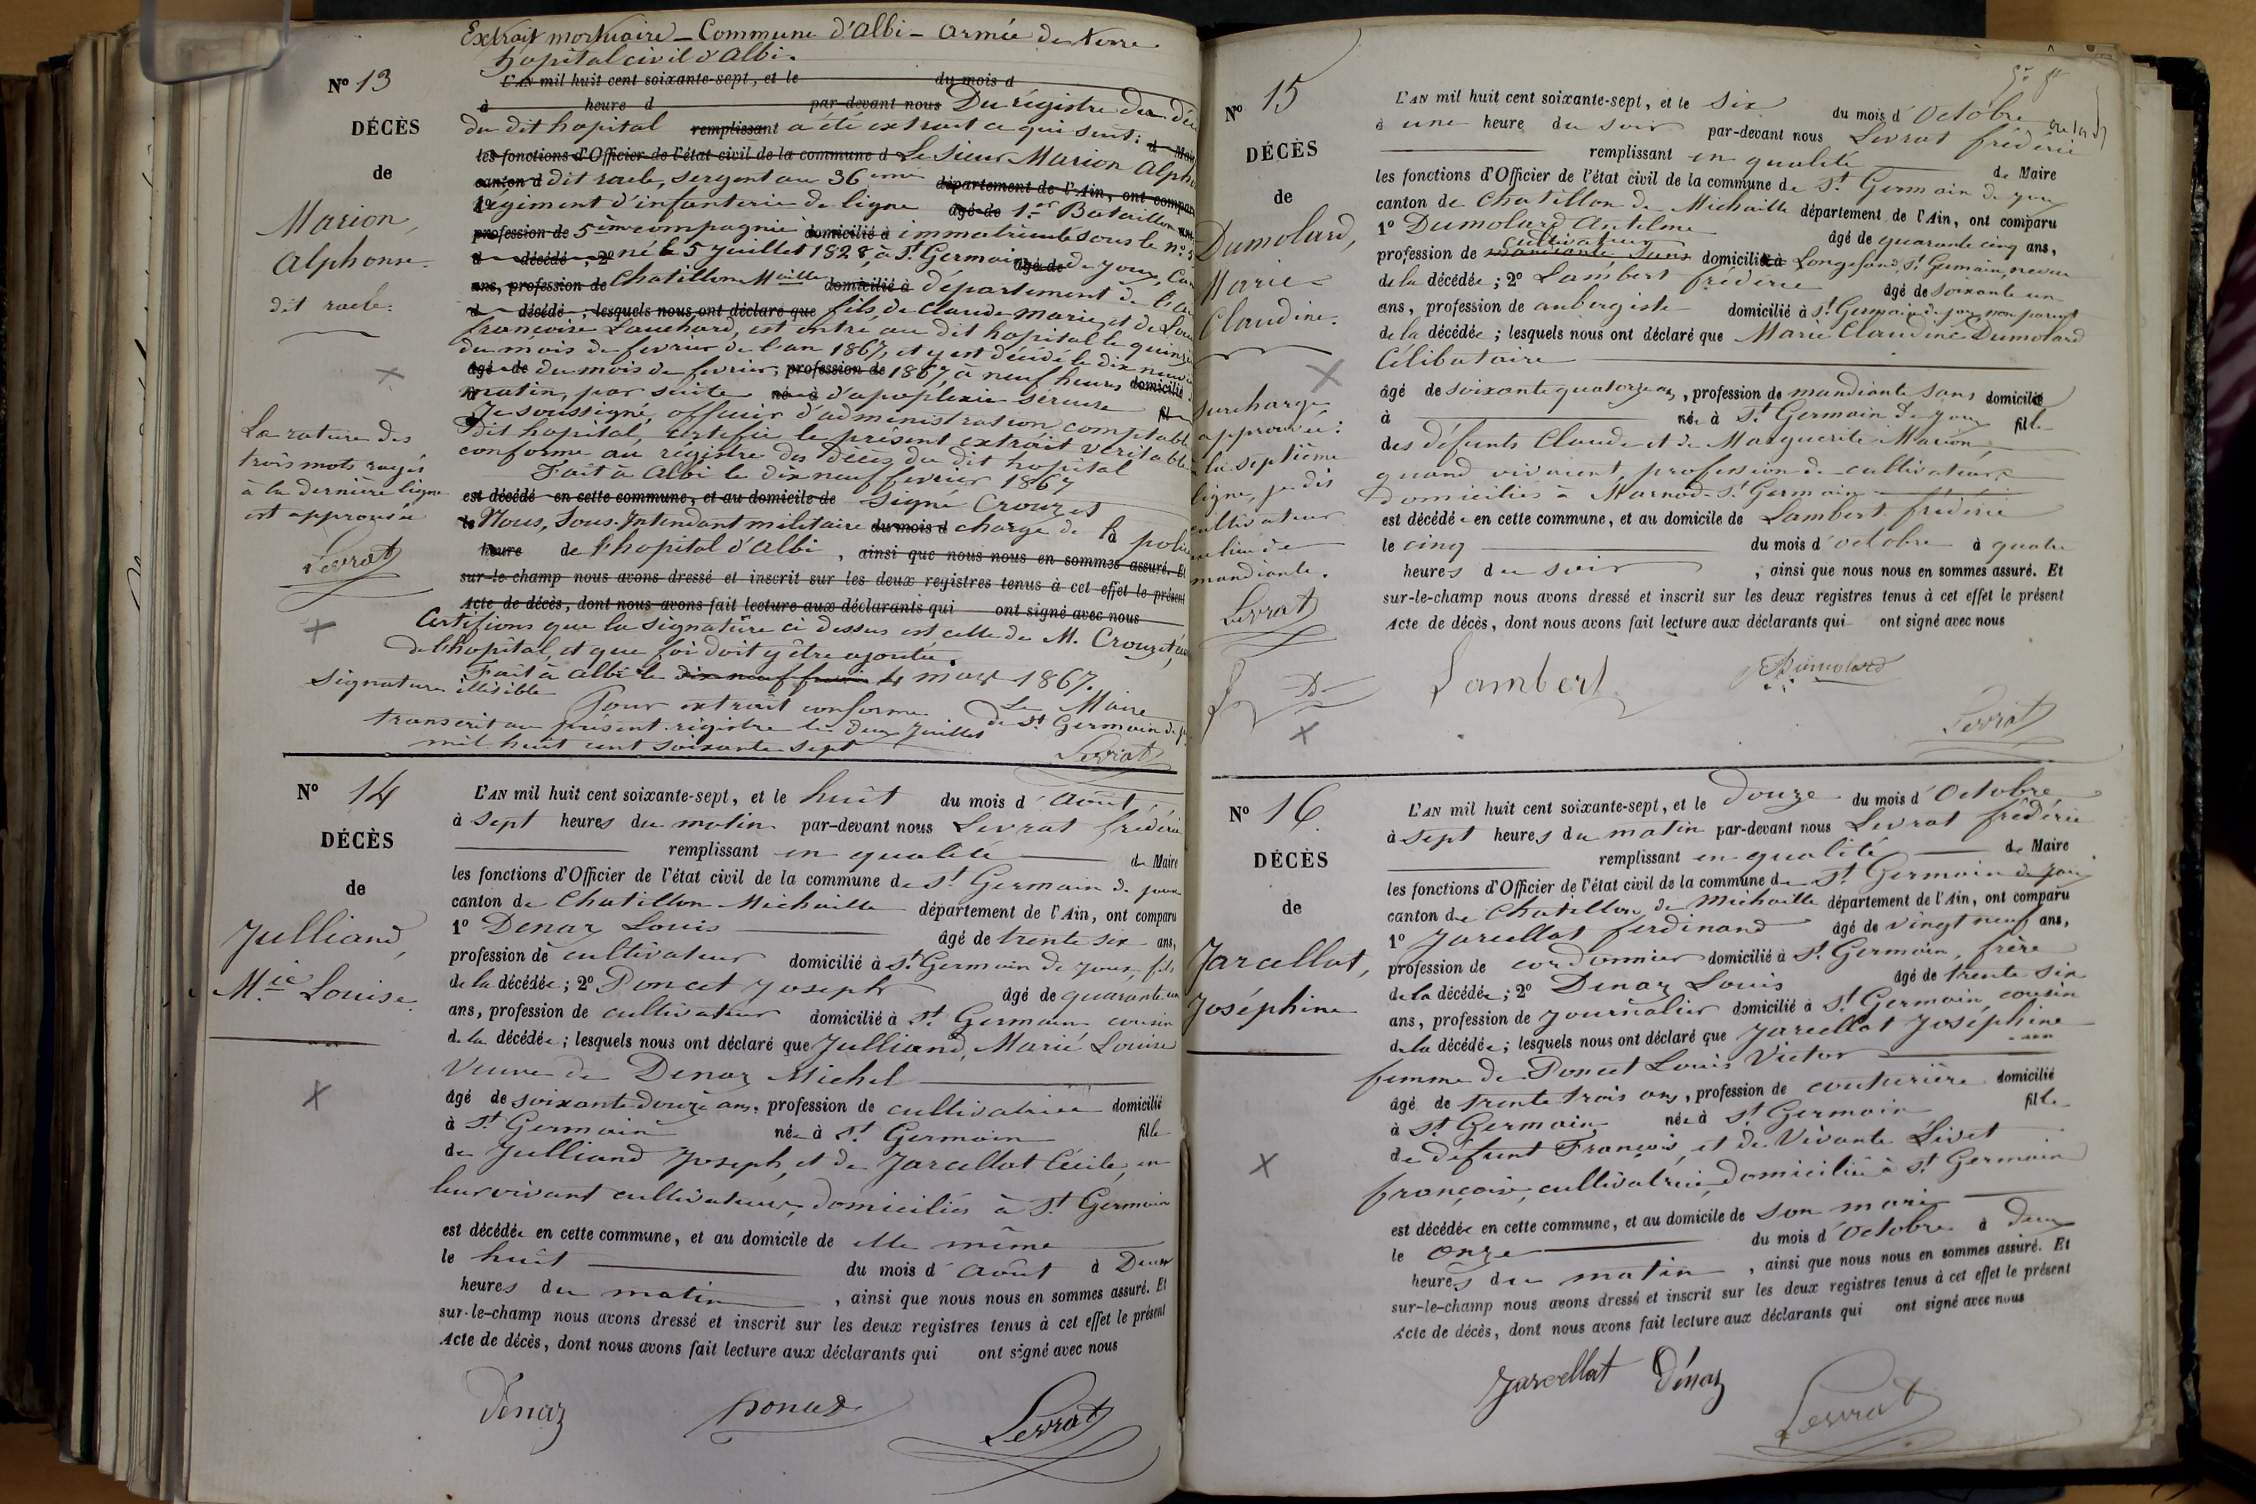 Extrait mortuaire - Commune d'Albi - armée de terre.
hôpital civil d'Albi.
No 13
DÉCÈS
de
Marion,
Alphonse
dit racle.
La rature des
trois mots rayés
à la dernière ligne
est approuvée
Levrat
L'AN mil huit cent soixante-sept, et le du mois d
à heure d par-devant nous Du régistre des
du dit hopital remplissant a été extrait ce qui suit: d Maire
les fonctions d'Officier de l'état civil de la commune d Le sieur Marion
canton d dit racle, sergent au 36eme département de l'Ain, ont
1o régiment d'infanterie de ligne âgé de 1er Bataillon
profession de 5ème compagnie domicilié à immatriculé sous le no
d décédé ; 2o né le 5 Juillet 1828, à St Germain âgé de de joux,
ans, profession de Chatillon Mlle domicilié à département de
d décédé ; lesquels nous ont déclaré que fils de Claude Marie, et de
françoise Louchard, est entré au dit hopital le quinze
du mois de fevrier de l'an 1867, et y est décédé le dix neuf
âgé de du mois de fevrier, profession de 1867, à neuf heures domicilié
à matin, par suite né à d'apoplexie séreuse fil
Je soussigné, officier d'administration comptable
dit hopital, certifie le présent extrait véritable
conforme au registre des décès du dit hopital
Fait à Albi le dix neuf fevrier 1867
est décédé en cette commune, et au domicile de Signé Crouzet
le Nous, Sous-Intendant militaire du mois d chargé de la à
heure de l'hopital d'Albi, ainsi que nous nous en sommes assuré. Et
sur-le-champ nous avons dressé et inscrit sur les deux registres tenus à cet effet le présent
Acte de décès, dont nous avons fait lecture aux déclarants qui ont signé avec nous
Certifions que la signature ci dessus est celle de M. Crouzet,
de l'hôpital, et que foi doit y être ajoutée.
Fait à Albi le dix neuf 4 mars 1867.
Signature illisible
Pour extrait conforme Le Maire
transcrit au présent régistre le deux Juillet de St Germain de
mil huit cent soixante sept
Levrat
No 14
DÉCÈS
de
Julliand,
Mie Louise.
L'AN mil huit cent soixante-sept, et le huit du mois d'Août
à sept heures du matin par-devant nous Levrat frédéric
remplissant en qualité de Maire
les fonctions d'Officier de l'état civil de la commune de St Germain de joux
canton de Chatillon Michaille département de l'Ain, ont comparu
1o Denaz Louis âgé de trente six ans,
profession de cultivateur domicilié à St Germain de joux, fils
de la décédée ; 2o Poncet Joseph âgé de quarante
ans, profession de cultivateur domicilié à St Germain cousin
de la décédée ; lesquels nous ont déclaré que Julliand, Marie Louise
Veuve de Denaz Michel
âgé de soixante douze ans, profession de cultivatrice domicilié
à St Germain née à St Germain fille
de Julliand Joseph, et de Jarcellat Cécile, en
leur vivant cultivateurs, domiciliés à St Germain
est décédée en cette commune, et au domicile de elle même
le huit du mois d'Août à Deux
heures du matin, ainsi que nous nous en sommes assuré. Et
sur-le-champ nous avons dressé et inscrit sur les deux registres tenus à cet effet le présent
Acte de décès, dont nous avons fait lecture aux déclarants qui ont signé avec nous
Dénaz Levrat
No 15
DÉCÈS
de
Dumolard,
Marie
Claudine.
surcharge
approuvée:
à la septième
ligne, je dis
cultivateur
au lieu de
mandiante.
Levrat
L D
L'AN mil huit cent soixante-sept, et le six du mois d'Octobre
à une heure du soir par-devant nous Levrat frédéric
remplissant en qualité de Maire
les fonctions d'Officier de l'état civil de la commune de St Germain de joux
canton de Chatillon de Michaille département de l'Ain, ont comparu
1o Dumolard Antelme âgé de quarante cinq ans,
profession de cultivateur domicilié à Longefand, St Germain, neveu
de la décédée ; 2o Lambert frédéric âgé de soixante un
ans, profession de aubergiste domicilié à St Germain de joux, non parent
de la décédée ; lesquels nous ont déclaré que Marie Claudine Dumolard
Célibataire
âgé de soixante quatorze ans, profession de mandiante sans domicilié
à née à St Germain de joux fille
des défunts Claude et de Marguerite Marion,
quand vivaient, profession de cultivateurs
domiciliés à Marnod St Germain
est décédée en cette commune, et au domicile de Lambert frédéric
le cinq du mois d'octobre à quatre
heures du soir, ainsi que nous nous en sommes assuré. Et
sur-le-champ nous avons dressé et inscrit sur les deux registres tenus à cet effet le présent
Acte de décès, dont nous avons fait lecture aux déclarants qui ont signé avec nous
Lambert Dumolard
Levrat
No 16
DÉCÈS
de
Jarcellat,
Joséphine
L'AN mil huit cent soixante-sept, et le douze du mois d'Octobre
à sept heures du matin par-devant nous Levrat frédéric
remplissant en qualité de Maire
les fonctions d'Officier de l'état civil de la commune de St Germain de joux
canton de Chatillon de Michaille département de l'Ain, ont comparu
1o Jarcellat ferdinand âgé de vingt neuf ans,
profession de cordonnier domicilié à St Germain, frère
de la décédée ; 2o Denaz Louis âgé de trente six
ans, profession de journalier domicilié à St Germain, cousin
de la décédée ; lesquels nous ont déclaré que Jarcellat Joséphine
femme de Poncet Louis Victor
âgé de trente trois ans, profession de couturière domicilié
à St Germain née à St Germain fille
de défunt François, et de Vivante Livet
françoise, cultivatrice, domiciliée à St Germain
est décédée en cette commune, et au domicile de son mari
le onze du mois d'Octobre à deux
heures du matin, ainsi que nous nous en sommes assuré. Et
sur-le-champ nous avons dressé et inscrit sur les deux registres tenus à cet effet le présent
Acte de décès, dont nous avons fait lecture aux déclarants qui ont signé avec nous
Jarcellat Dénaz
Levrat